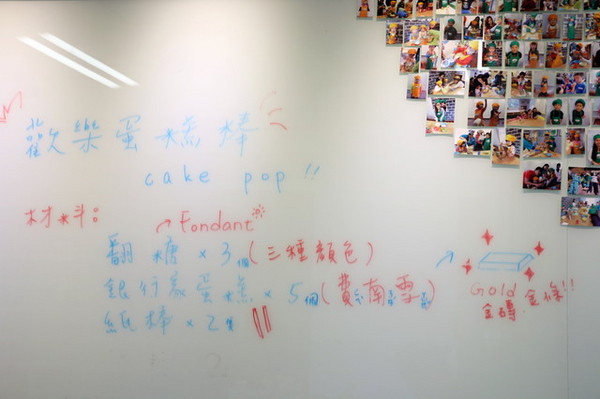 歡樂蛋糕棒
cake pop !!
材料:
Fondant
翻糖 x 3個 (三種顏色)
銀行家蛋糕 x 5個 (費南雪)
紙棒 x 2
Gold
金磚.金條!!